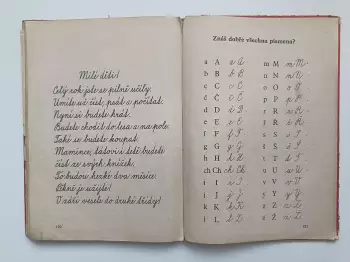 Milé děti!
Celý rok jste se pilně učily.
Umíte už číst, psát a počítat.
Nyní si budete hrát.
Budete chodit do lesa a na pole.
Také se budete koupat.
Mamince, tátovi i tetě budete
číst ze svých knížek.
To budou hezké dva měsíce.
Pěkně je užijte!
V září vesele do druhé třídy!
Znáš dobře všechna písmena?
a A a A m M m M
b B b B n N n N
c C c C o O o O
d D d D p P p P
e E e E r R r R
f F f F s S s S
g G g G š Š š Š
h H h H t T t T
ch Ch ch Ch u U u U
i I i I v V v V
j J j J z Z z Z
k K k K ž Ž ž Ž
l L l L